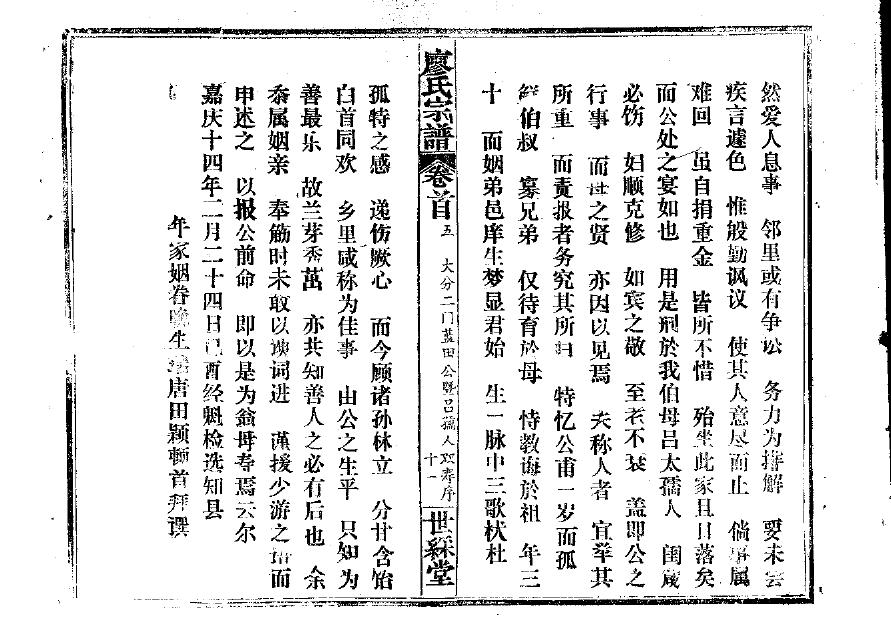 然爱人息事　邻里或有争讼　务力为排解　要未尝
疾言遽色　惟般勤讽议　使其人意尽而止　倘事属
难回　虽自捐重金　皆所不惜　殆坐此家且日落矣
而公处之宴如也　用是刑於我伯母吕太孺人　闺箴
必饬　妇顺克修　如宾之敬　至老不衰　盖即公之
行事　而世之贤　亦因以见焉　夫称人者　宜举其
所重　而责报者务究其所归　特忆公甫一岁而孤
鲜伯叔　寡兄弟　仅待育於母　恃教诲於祖　年三
十　而姻弟邑庠生梦显君始　生一脉中三歌杕杜
廖氏宗谱　卷首　五　大分二门蓝田公暨吕孺人双寿序　十一　世綵堂
孤特之感　递伤厥心　而今顾诸孙林立　分甘含饴
白首同欢　乡里咸称为佳事　由公之生平　只知为
善最乐　故兰芽秀茁　亦共知善人之必有后也　余
忝属姻亲　奉觞时未敢以谀词进　谨援少游之语而
申述之　以报公前命　即以是为翁母寿焉云尔
嘉庆十四年二月二十四日己酉经魁检选知县
年家姻眷晚生唐田颖顿首拜撰